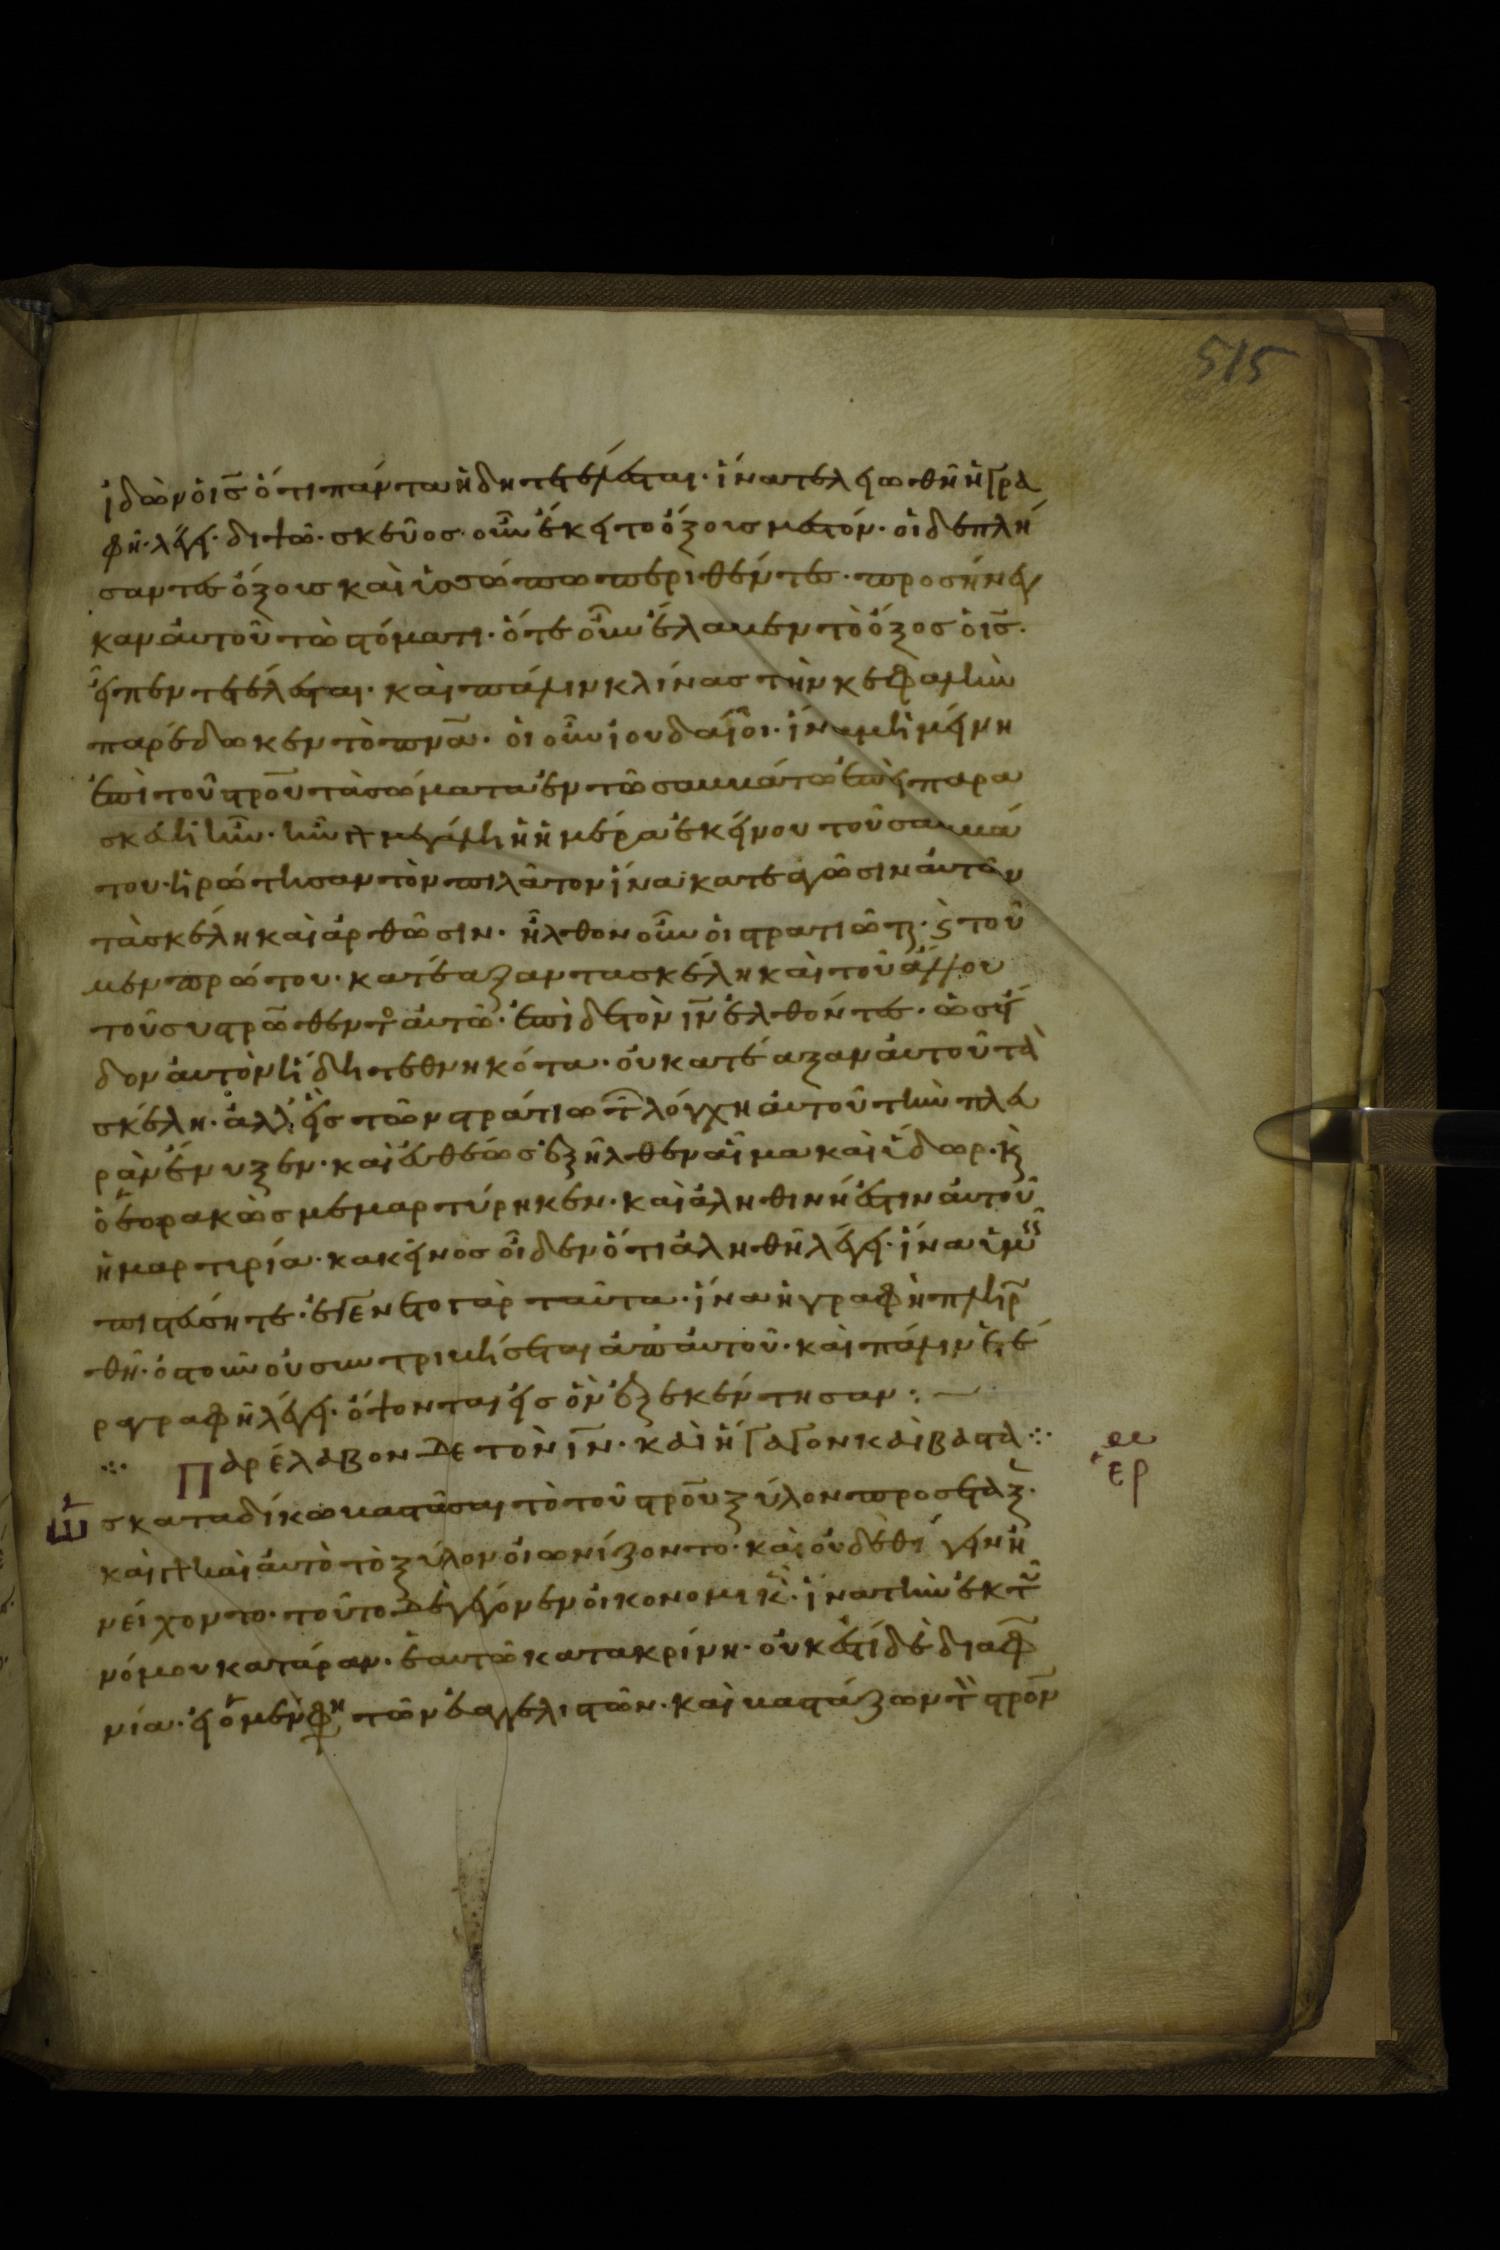 515
ἰδὼν ὁ ις ὅτι πάντα ἤδη τετέλεσται· ἵνα τελειωθῆ ἡ γρα
φὴ· λέγει· διψῶ· σκεῦος οὖν ἔκειτο ὄξους μεστόν· οἱ δὲ πλή
σαντες ὄξους καὶ ὑσσώπω περιθέντες· προσήνεγ
καν αὐτοῦ τῶ στόματι· ὅτε οὖν ἔλαβεν τὸ ὄξος ὁ ις·
εἶπεν τετέλεσται· καὶ πάλιν κλίνας τὴν κεφαλὴν
παρέδωκεν τὸ πνα· οἱ οὖν ἰουδαῖοι· ἵνα μὴ μείνη
ἐπὶ τοῦ στρου τὰ σώματα ἐν τῶ σαββάτω ἐπεὶ παρα
σκευὴ ἦν· ἦν γὰρ μεγάλη ἡ ἡμέρα ἐκείνου τοῦ σαββά
του· ἠρώτησαν τὸν πιλᾶτον ἵνα κατεαγῶσιν αὐτῶν
τὰ σκέλη καὶ ἀρθῶσιν· ἦλθον οὖν οἱ στρατιῶται· καὶ τοῦ
μεν πρώτου· κατέαξαν τα σκέλη καὶ τοῦ ἄλλου
τοῦ συστρωθεντος αὐτῶ· ἐπὶ δὲ τὸν ιν ἐλθόντες· ὡς εἶ
δον αὐτὸν ἤδη τεθνηκότα· οὐ κατέαξαν αὐτοῦ τὰ
σκέλη· ἀλλ' εἷς τῶν στρατιωτ λόγχη αὐτοῦ τὴν πλευ
ρὰν ἔνυξεν· καὶ εὐθέως ἐξῆλθεν αἷμα καὶ ὕδωρ· καὶ
ὁ ἑορακὼς μεμαρτύρηκεν· καὶ ἀληθινή ἐστιν αὐτοῦ
ἡ μαρτυρία· κακεῖνος οἶδεν ὅτι ἀληθῆ λέγει· ἵνα ὑμεῖς
πιστεύσητε· ἐγένετο γὰρ ταῦτα· ἵνα ἡ γραφὴ πληρ
θῆ· ὀστοῦν οὐ συντριβήσεται ἀπ' αὐτοῦ· καὶ πάλιν ἑτέ
ρα γραφὴ λέγει· ὄψονται εἰς ὃν ἐξεκέντησαν :
Παρέλαβον δὲ τὸν ιν· καὶ ἤγαγον καὶ βαστα
ερ
ς καταδίκω βαστᾶσαι τὸ τοῦ στρου ξύλον προσεταξ·
καὶ γὰρ καὶ αὐτὸ τὸ ξύλον οἰωνίζοντο· καὶ οὐδὲ θιγεῖν ἠ
νείχοντο· τοῦτο δὲ γέγονεν οἰκονομικ· ἵνα τὴν ἐκ τ
νόμου κατάραν· ἑαυτῶ κατακρίνη· οὐκ ἔστι δὲ διαφ
νία· εἰ ὁ μέν φη τῶν εὐαγγελιστῶν· καὶ βαστάζων τ στρον